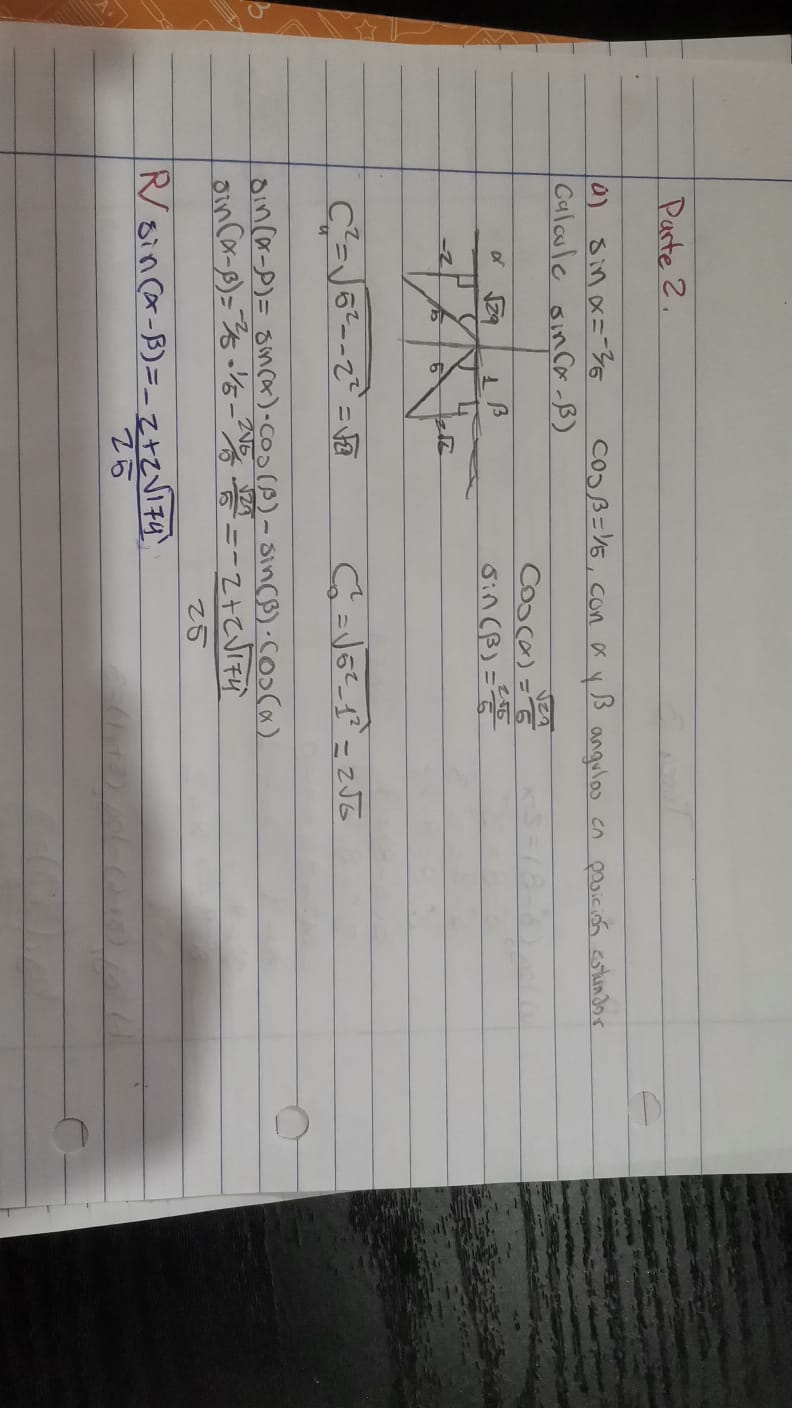 Parte 2.
a) sin α = -2/5 cos β = 1/5, con α y β angulos en posición estandar
Calcule sin(α - β)
α √29 1 β
-2 5 5 2√6
Cos(α) = √29/5
sin(β) = 2√6/5
C² = √5² - -2² = √29 C² = √5² - 1² = 2√6
sin(α-β) = sin(α)·cos(β) - sin(β)·cos(α)
sin(α-β) = -2/5 · 1/5 - 2√6/5 · √29/5 = - 2+2√174 / 25
R/ sin(α-β) = - 2+2√174 / 25